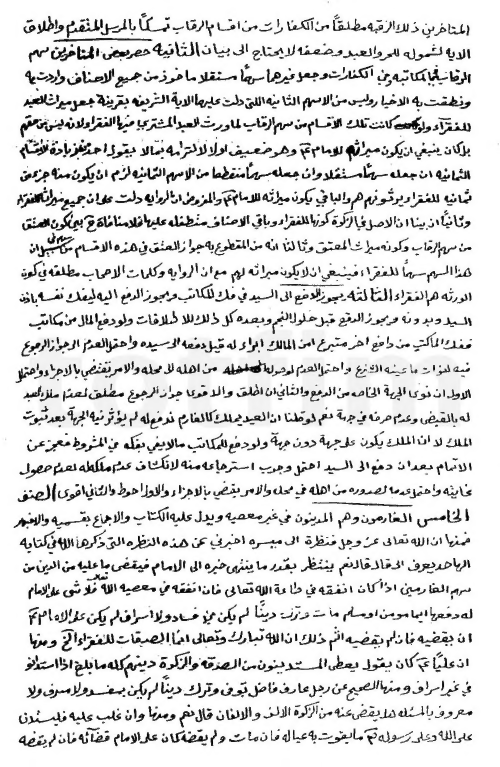 المتاخرين ذلك الرقبه مطلقا من الكفارات من اقسام الرقاب تمسكا بالمرسل المتقدم واطلاق
الايه لشموله للحر والعبد وضعفه لا يحتاج الى بيان الثانيه حصر بعض المتاخرين سهم
الرقاب مكاتبه الكفارات وجعل غيرها سهما مستقلا ماخوذ من جميع الاصناف واردت به
ونطقت به الاخبار وليس من الاسهم الثمانيه التى دلت عليها الايه الشريفه بقرينة جعل ميراث العبد
للفقراء ولو كانت تلك الاقسام من سهم الرقاب لما ورث العبد المشترى منها الفقراء ولانه ليس من حقهم
بل كان ينبغي ان يكون ميراثه للامام وهو ضعيف اولا لالتزامه بما لا يقول احد بزيادة الاقسام
الثمانيه ان جعله سهما مستقلا وان جعله سهما منقطعا من الاسهم الثمانيه لزم ان يكون منه جزء من
ثمانيه للفقراء يرثونهم والباقي يكون ميراثه للامام والمفروض ان الروايه دلت على ان جميع ميراثه للفقراء
وثانيا ان بينا ان الاصل في الزكوة كونها للفقراء وباقي الاصناف متطفله عليها فلا منافاة بين كون العتق
من سهم الرقاب وكونه ميراث المعتق وثالثا انه من المقطوع به جواز العتق في هذه الاقسام من سبيل ان
هذا السهم سهما للفقراء فينبغي ان لا يكون ميراثه لهم مع ان الروايه وكلمات الاصحاب مطلقه في كون
الورثه هم الفقراء الثالثه يجوز الدفع الى السيد في فك المكاتب ويجوز الدفع اليه ليفك نفسه باذن
السيد وبدونه ويجوز الدفع قبل حلول النجم وبعده كل ذلك للاطلاقات ولو دفع المال من مكاتب
ففك المالكت من دافع اخر متبرع من المالك ابراء له قبل دفعه الى سيده واحتمل العدم لجواز الرجوع
فيه لفوات ما عينه الشرع واحتمل العدم لصدوره من اهله لا محله والامر يقتضي بالاجزاء واحتمل
الاول ان نوى الجهة الخاصه من الدفع والثاني ان اطلق والاقوى جواز الرجوع مطلق لعدم ملك العبد
له بالقبض وعدم صرفه في جهة نعم لو قلنا ان العبد يملك كالغارم ندفع له لم يؤثر نية الجهة بعد ثبوت
الملك لان الملك يكون على جهة دون جهة ولو دفع المكاتب ما لا يفي بفكه من المشروط فعجز عن
الاتمام بعد ان دفع الى السيد احتمل وجوب استرجاعه منه لانكشاف عدم ملكه له لعدم حصول
غايته واحتمل عدمه لصدوره من اهله في محله والامر يقتضي بالاجزاء والاول احوط والثاني اقوى الصنف
الخامس الغارمون وهم المدينون في غير معصيه ويدل عليه الكتاب والاجماع بقسميه والاخبار
فمنها ان الله تعالى عز وجل فنظرة الى ميسره اخبرني عن هذه النظره التى ذكرها الله في كتابه
الها حد يعرف الى قال نعم ينتظر بقدر ما ينتهى خبره الى الامام فيقضى ما عليه من الدين من
سهم الغارمين اذا كان انفقه في طاعة الله تعالى فان انفقه في معصية الله فلا شى على الامام
له ومنها ايما مومن او مسلم مات وترك دينا لم يكن في فساد ولا اسراف لم يكن على الامام
ان يقضيه فان لم يقضيه اثم ذلك ان الله تبارك وتعالى انما الصدقات للفقراء الخ ومنها
ان عليا كان يقول يعطى المستدينون من الصدقه والزكوة دينهم كله ما بلغ اذا استدانو
في غير اسراف ومنها الصحيح عن رجل عارف فاضل توفى وترك دينا لم يكن بمفسد ولا مسرف ولا
معروف بالمسئله هل يقضى عنه من الزكوة الالف والالفان قال نعم ومنها وان غلب عليه فليستدن
على الله وعلى رسوله ما يقوت به عياله فان مات ولم يقضه كان على الامام قضائه فان لم يقضه